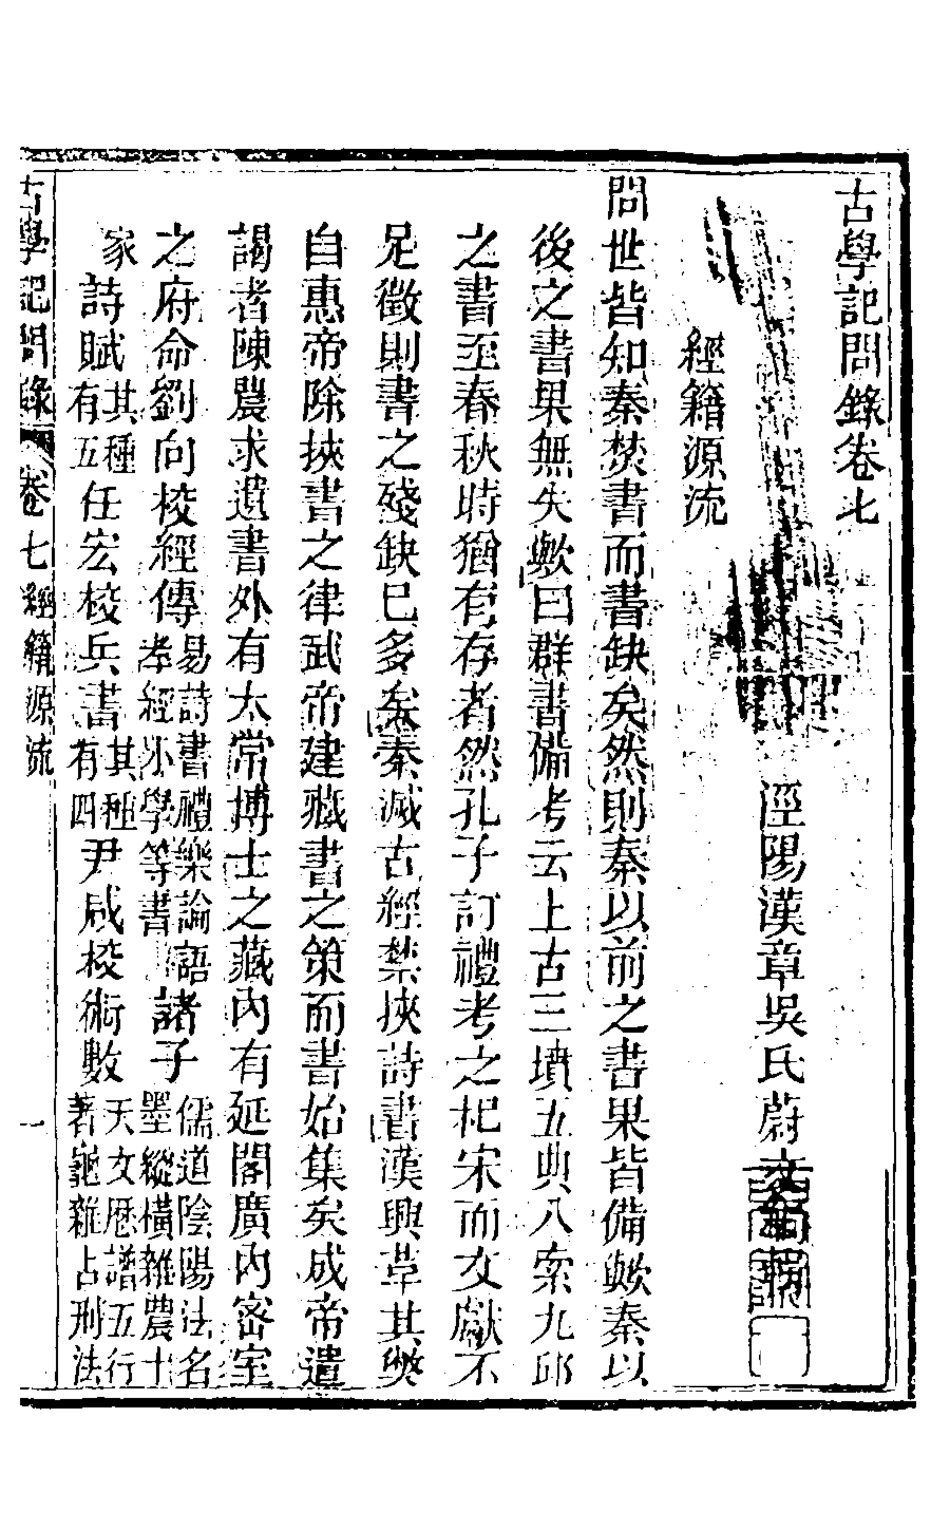 古學記問錄卷七
涇陽漢章吳氏蔚文
經籍源流
問世皆知秦焚書而書缺矣然則秦以前之書果皆備歟秦以
後之書果無失歟曰群書備考云上古三墳五典八索九邱
之書至春秋時猶有存者然孔子訂禮考之杞宋而文獻不
足徵則書之殘缺已多矣秦滅古經禁挾詩書漢興革其獘
自惠帝除挾書之律武帝建藏書之策而書始集矣成帝遣
謁者陳農求遺書外有太常博士之藏內有延閣廣內密室
之府命劉向校經傳易詩書禮樂論語孝經小學等書諸子儒道陰陽法名墨縱橫雜農十
家詩賦其種有五任宏校兵書其種有四尹咸校術數天文歷譜五行著龜雜占刑法
古學記問錄 卷七 經籍源流 一